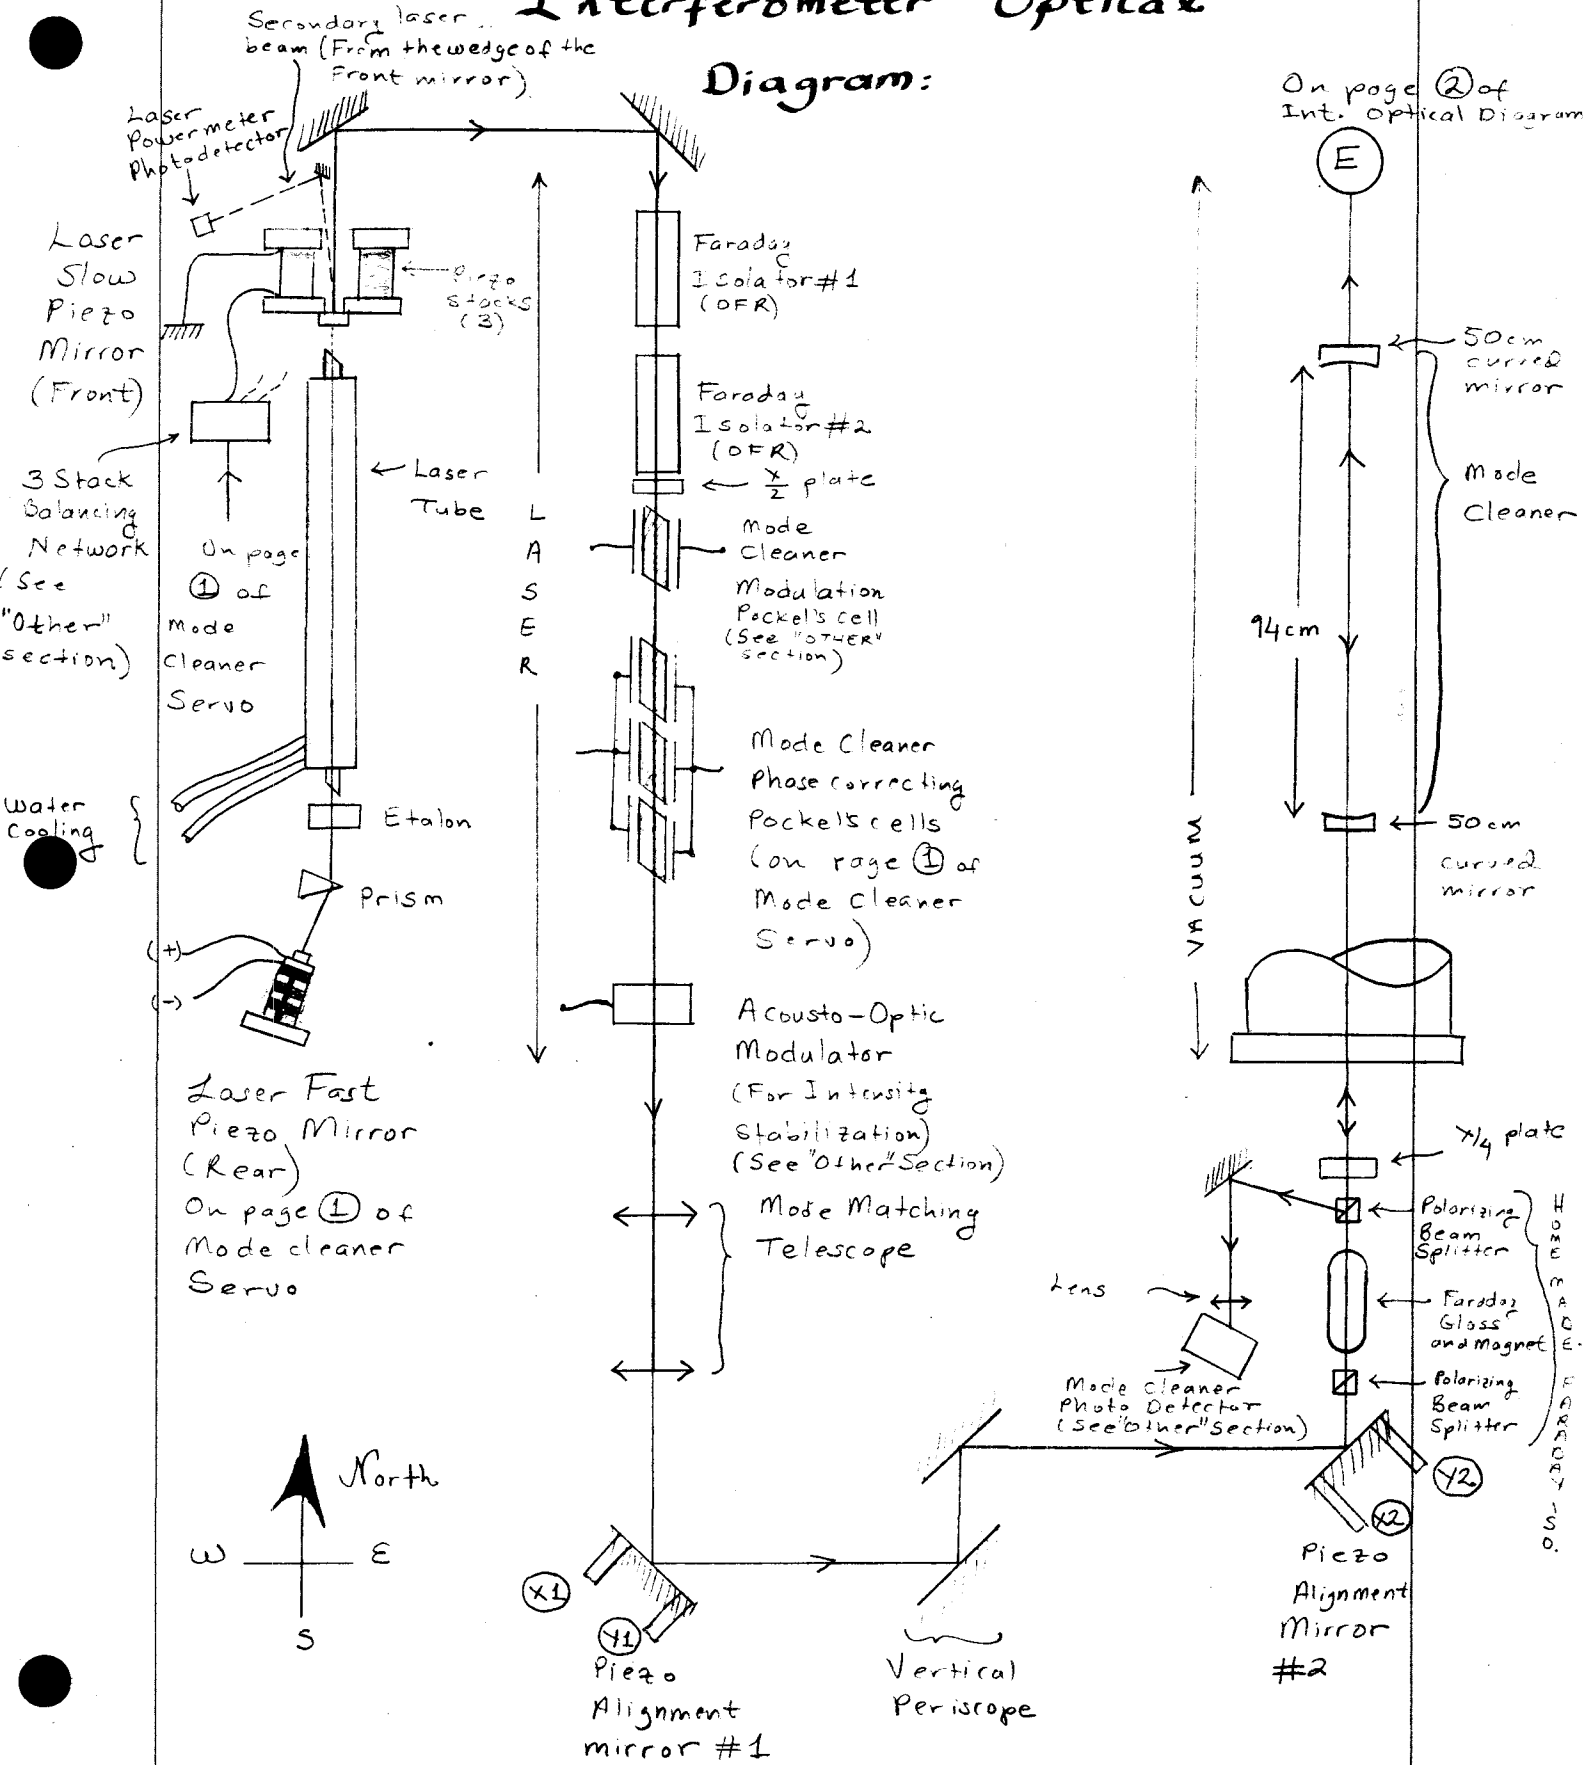 Interferometer Optical
Diagram:
Secondary laser
beam (From the wedge of the
Front mirror)
Laser
Powermeter
Photodetector
Laser
Slow
Piezo
Mirror
(Front)
Piezo
Stacks
(3)
3 Stack
Balancing
Network
(See
"Other"
section)
On page
① of
Mode
Cleaner
Servo
Laser
Tube
Water
Cooling
Etalon
Prism
(+)
(-)
Laser Fast
Piezo Mirror
(Rear)
On page ① of
Mode cleaner
Servo
North
W E
S
L
A
S
E
R
Faraday
Isolator #1
(OFR)
Faraday
Isolator #2
(OFR)
λ/2 plate
Mode
Cleaner
Modulation
Pockel's cell
(See "OTHER"
section)
Mode Cleaner
Phase correcting
Pockel's cells
(on page ① of
Mode Cleaner
Servo)
Acousto-Optic
Modulator
(For Intensity
Stabilization)
(See "Other" Section)
Mode Matching
Telescope
X1
Y1
Piezo
Alignment
mirror #1
Vertical
Periscope
On page ② of
Int. Optical Diagram
E
50cm
curved
mirror
Mode
Cleaner
94cm
50cm
curved
mirror
VACUUM
λ/4 plate
Polarizing
Beam
Splitter
Faraday
Glass
and Magnet
Polarizing
Beam
Splitter
HOME MADE FARADAY ISO.
Lens
Mode Cleaner
Photo Detector
(See "Other" Section)
Y2
X2
Piezo
Alignment
Mirror
#2